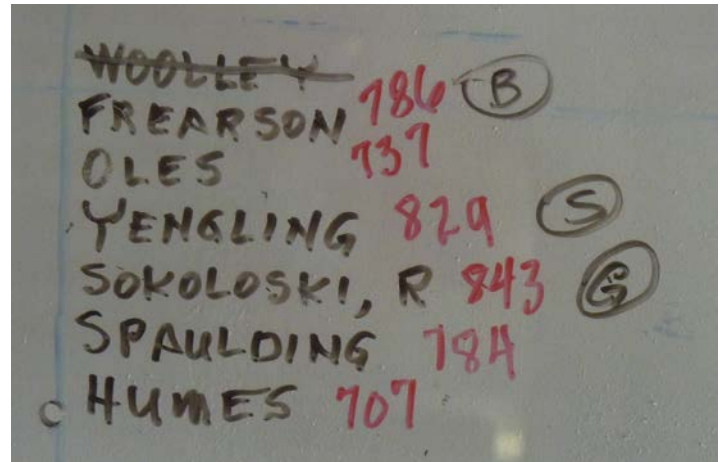 WOOLLEY
FREARSON 786 B
OLES 737
YENGLING 829 S
SOKOLOSKI, R 843 G
SPAULDING 784
C HUMES 707